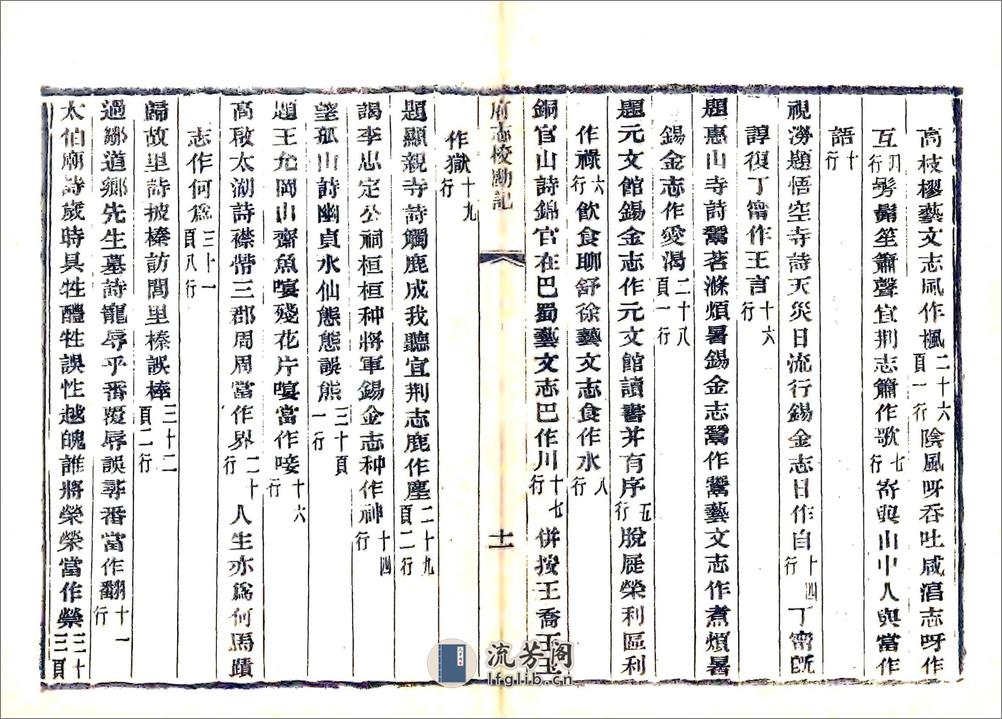 高枝樛藝文志風作楓二十六頁一行陰風呀吞吐咸淐志呀作
互羽行髣髴笙簫聲宜荆志簫作歌七行寄與山中人與當作
語十行
視澇題悟空寺詩天災日流行錫金志日作自十四行丁甯旣
諄復丁甯作王言十六行
題惠山寺詩鬻茗滌煩暑錫金志鬻作鬻藝文志作煮煩暑
錫金志作愛渴二十八頁一行
題元文館錫金志作元文館讀書并有序五行脫屣榮利區利
作祿六行飲食聊舒徐藝文志食作水八行
銅官山詩錦官在巴蜀藝文志巴作川十七行併按王喬王玉
府志校勘記
十一
作獄十九行
題顯親寺詩觸鹿成我聽宜荆志鹿作塵二十九頁二行
謁李忠定公祠桓桓种將軍錫金志种作神十四行
望孤山詩幽貞水仙態態誤熊三十頁一行
題王允岡山齋魚喥殘花片喥當作唼十六行
高啟太湖詩襟帶三郡周周當作界二十行人生亦爲何馬蹟
志作何爲三十一頁八行
歸故里詩披榛訪閭里榛誤棒三十二頁二行
過鄒道鄉先生墓詩寵辱乎番覆辱誤尋番當作翻十一行
太伯廟詩歲時具牲醴牲誤性越魄誰將榮榮當作縈三十三頁
流芳阁
lfglib.cn